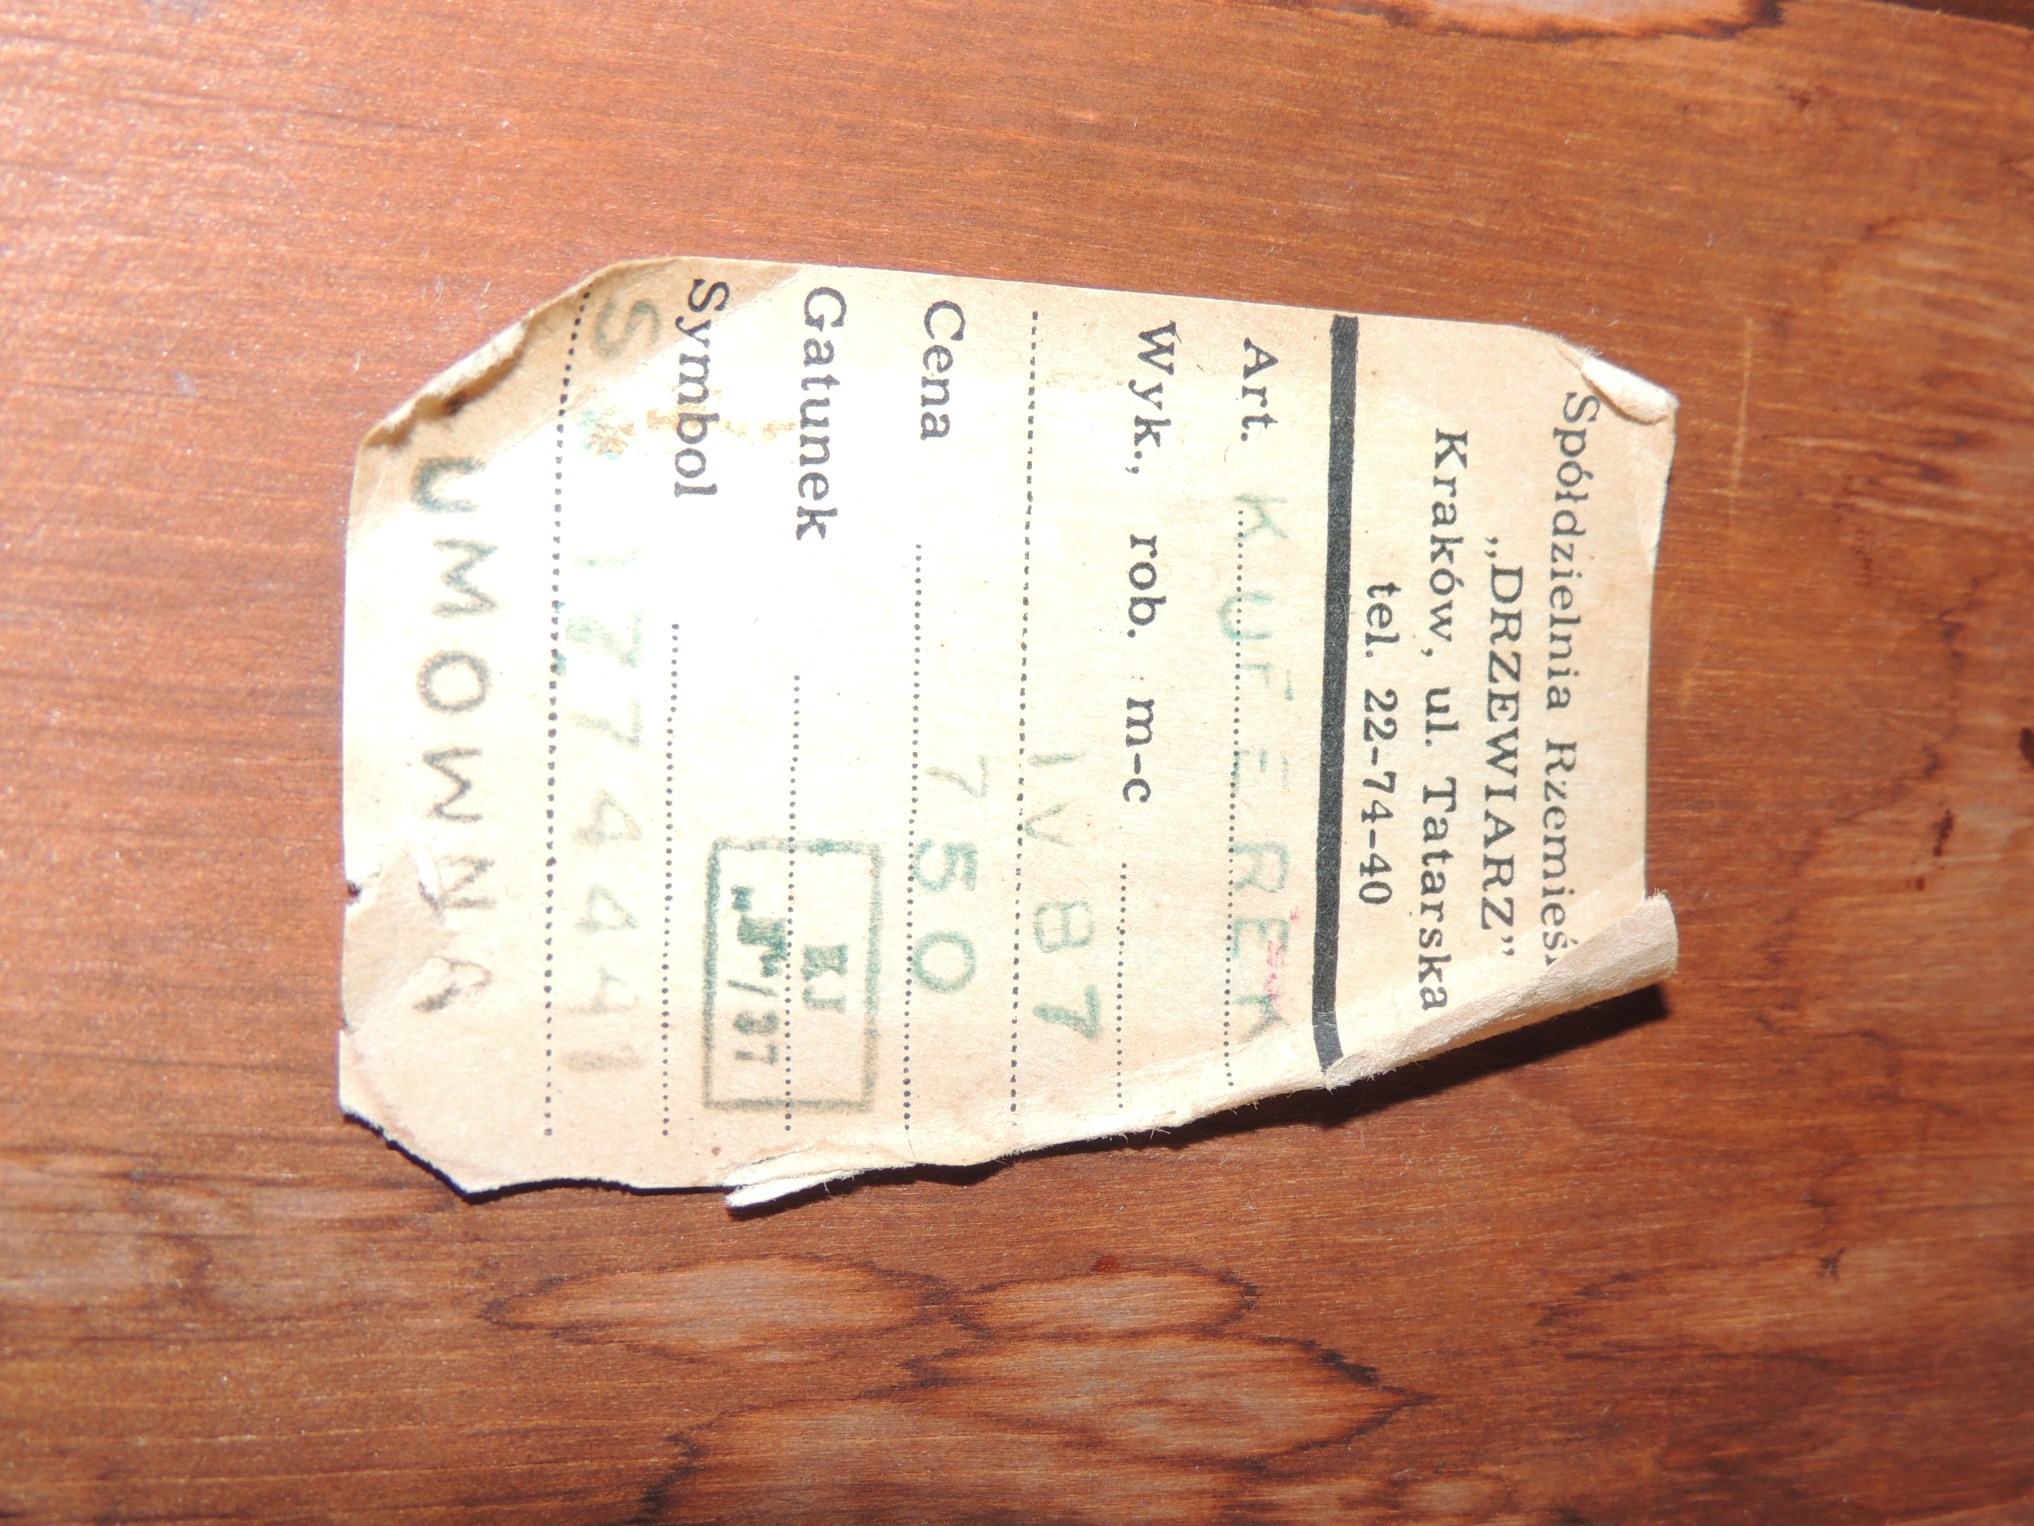 Spółdzielnia Rzemieś
„DRZEWIARZ”
Kraków, ul. Tatarska
tel. 22-74-40
Art. KUFEREK
Wyk., rob. m-c
IV 87
Cena 750
Gatunek KJ
Symbol
1774441
UMOWNA